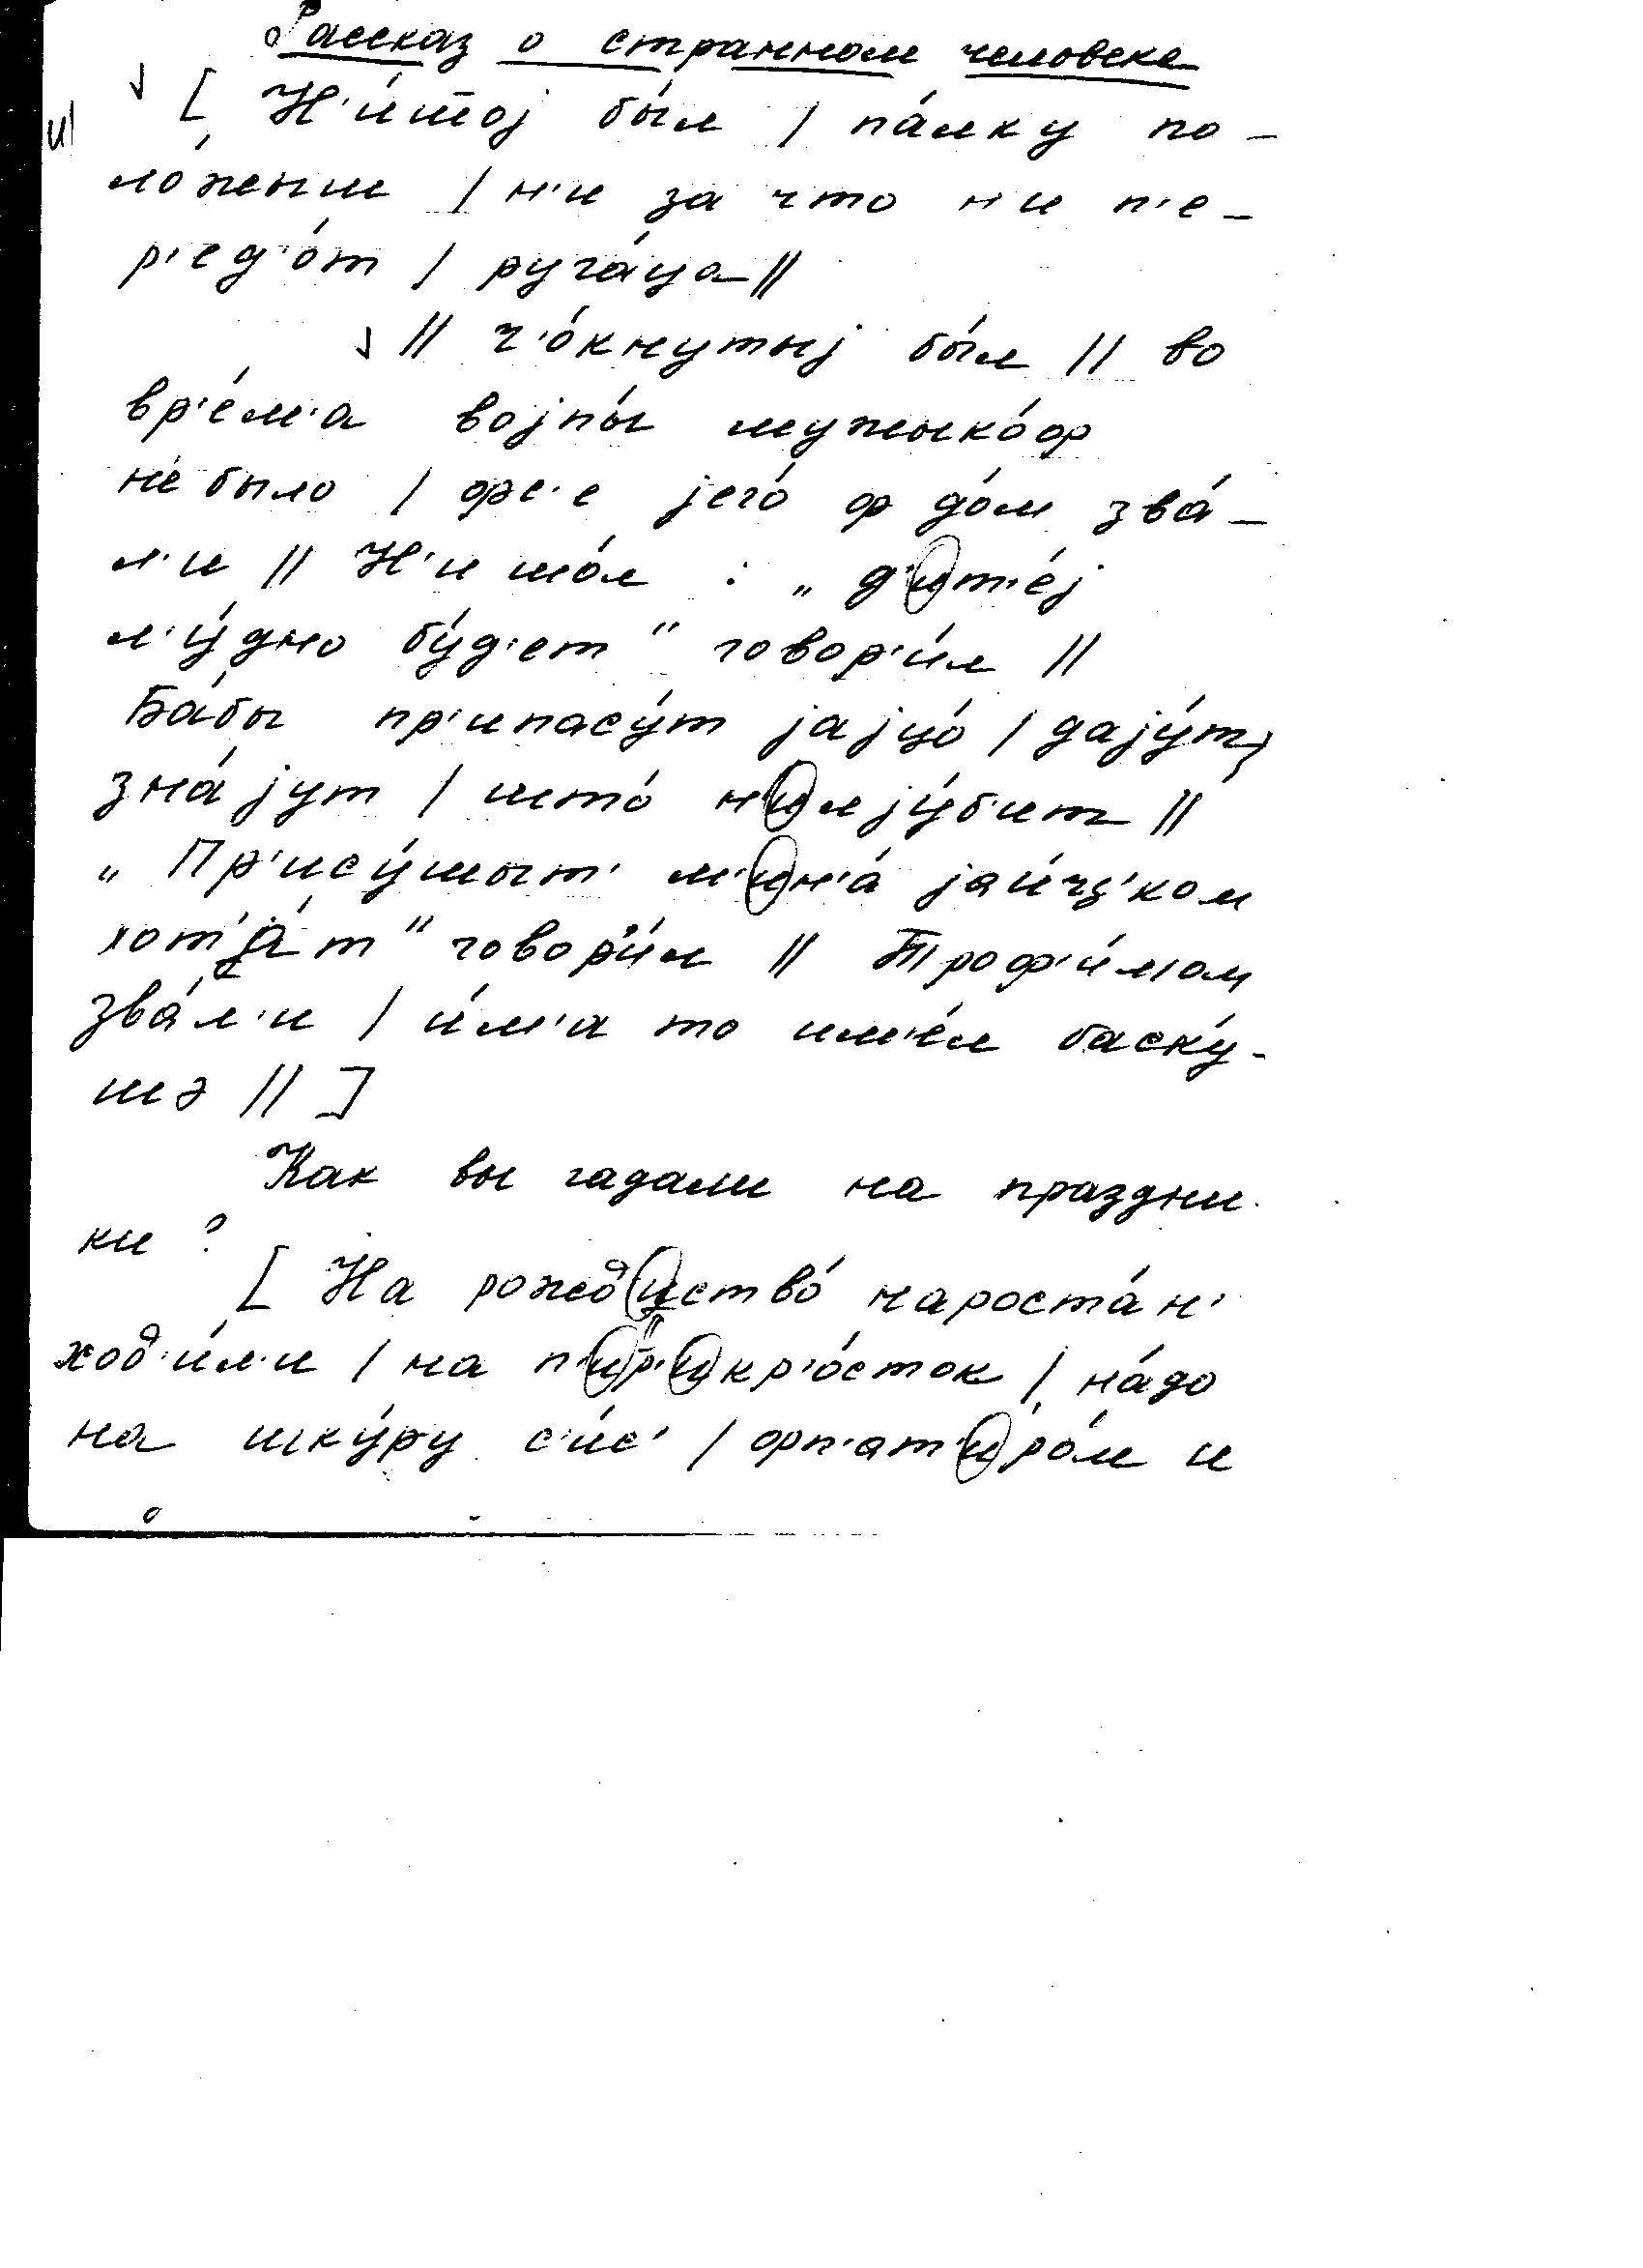 Рассказ о странном человеке
[ Н'и́штој бы́л / па́лку по-
ло́жены / н'и за что н'и п'е-
р'ед'о́т / руга́ца //
// ч'о́кнутыј бы́л // во
вр'е́м'а војны́ мужыко́ф
не было / фс'е јего́ ф до́м зва́-
л'и // Н'и шо́л : „ д'ит'е́ј
м'у́дно бу́д'ет " говор'и́л //
Ба́бы пр'ипасу́т јајцо́ / дају́т,
зна́јут / што́ н'и лју́бит //
„ Пр'ису́шыт' м'ин'а́ јаи́ч'ком
хот'а́т " говор'и́л // Троф'и́мом
зва́л'и / и́м'а то им'е́л баску́-
шэ // ]
Как вы гадали на праздни-
ки ?
[ На рождиство́ нароста́н'
ход'и́л'и / на п'ир'икр'о́сток / на́до
на шку́ру с'и́с' / фп'ат'иро́м и